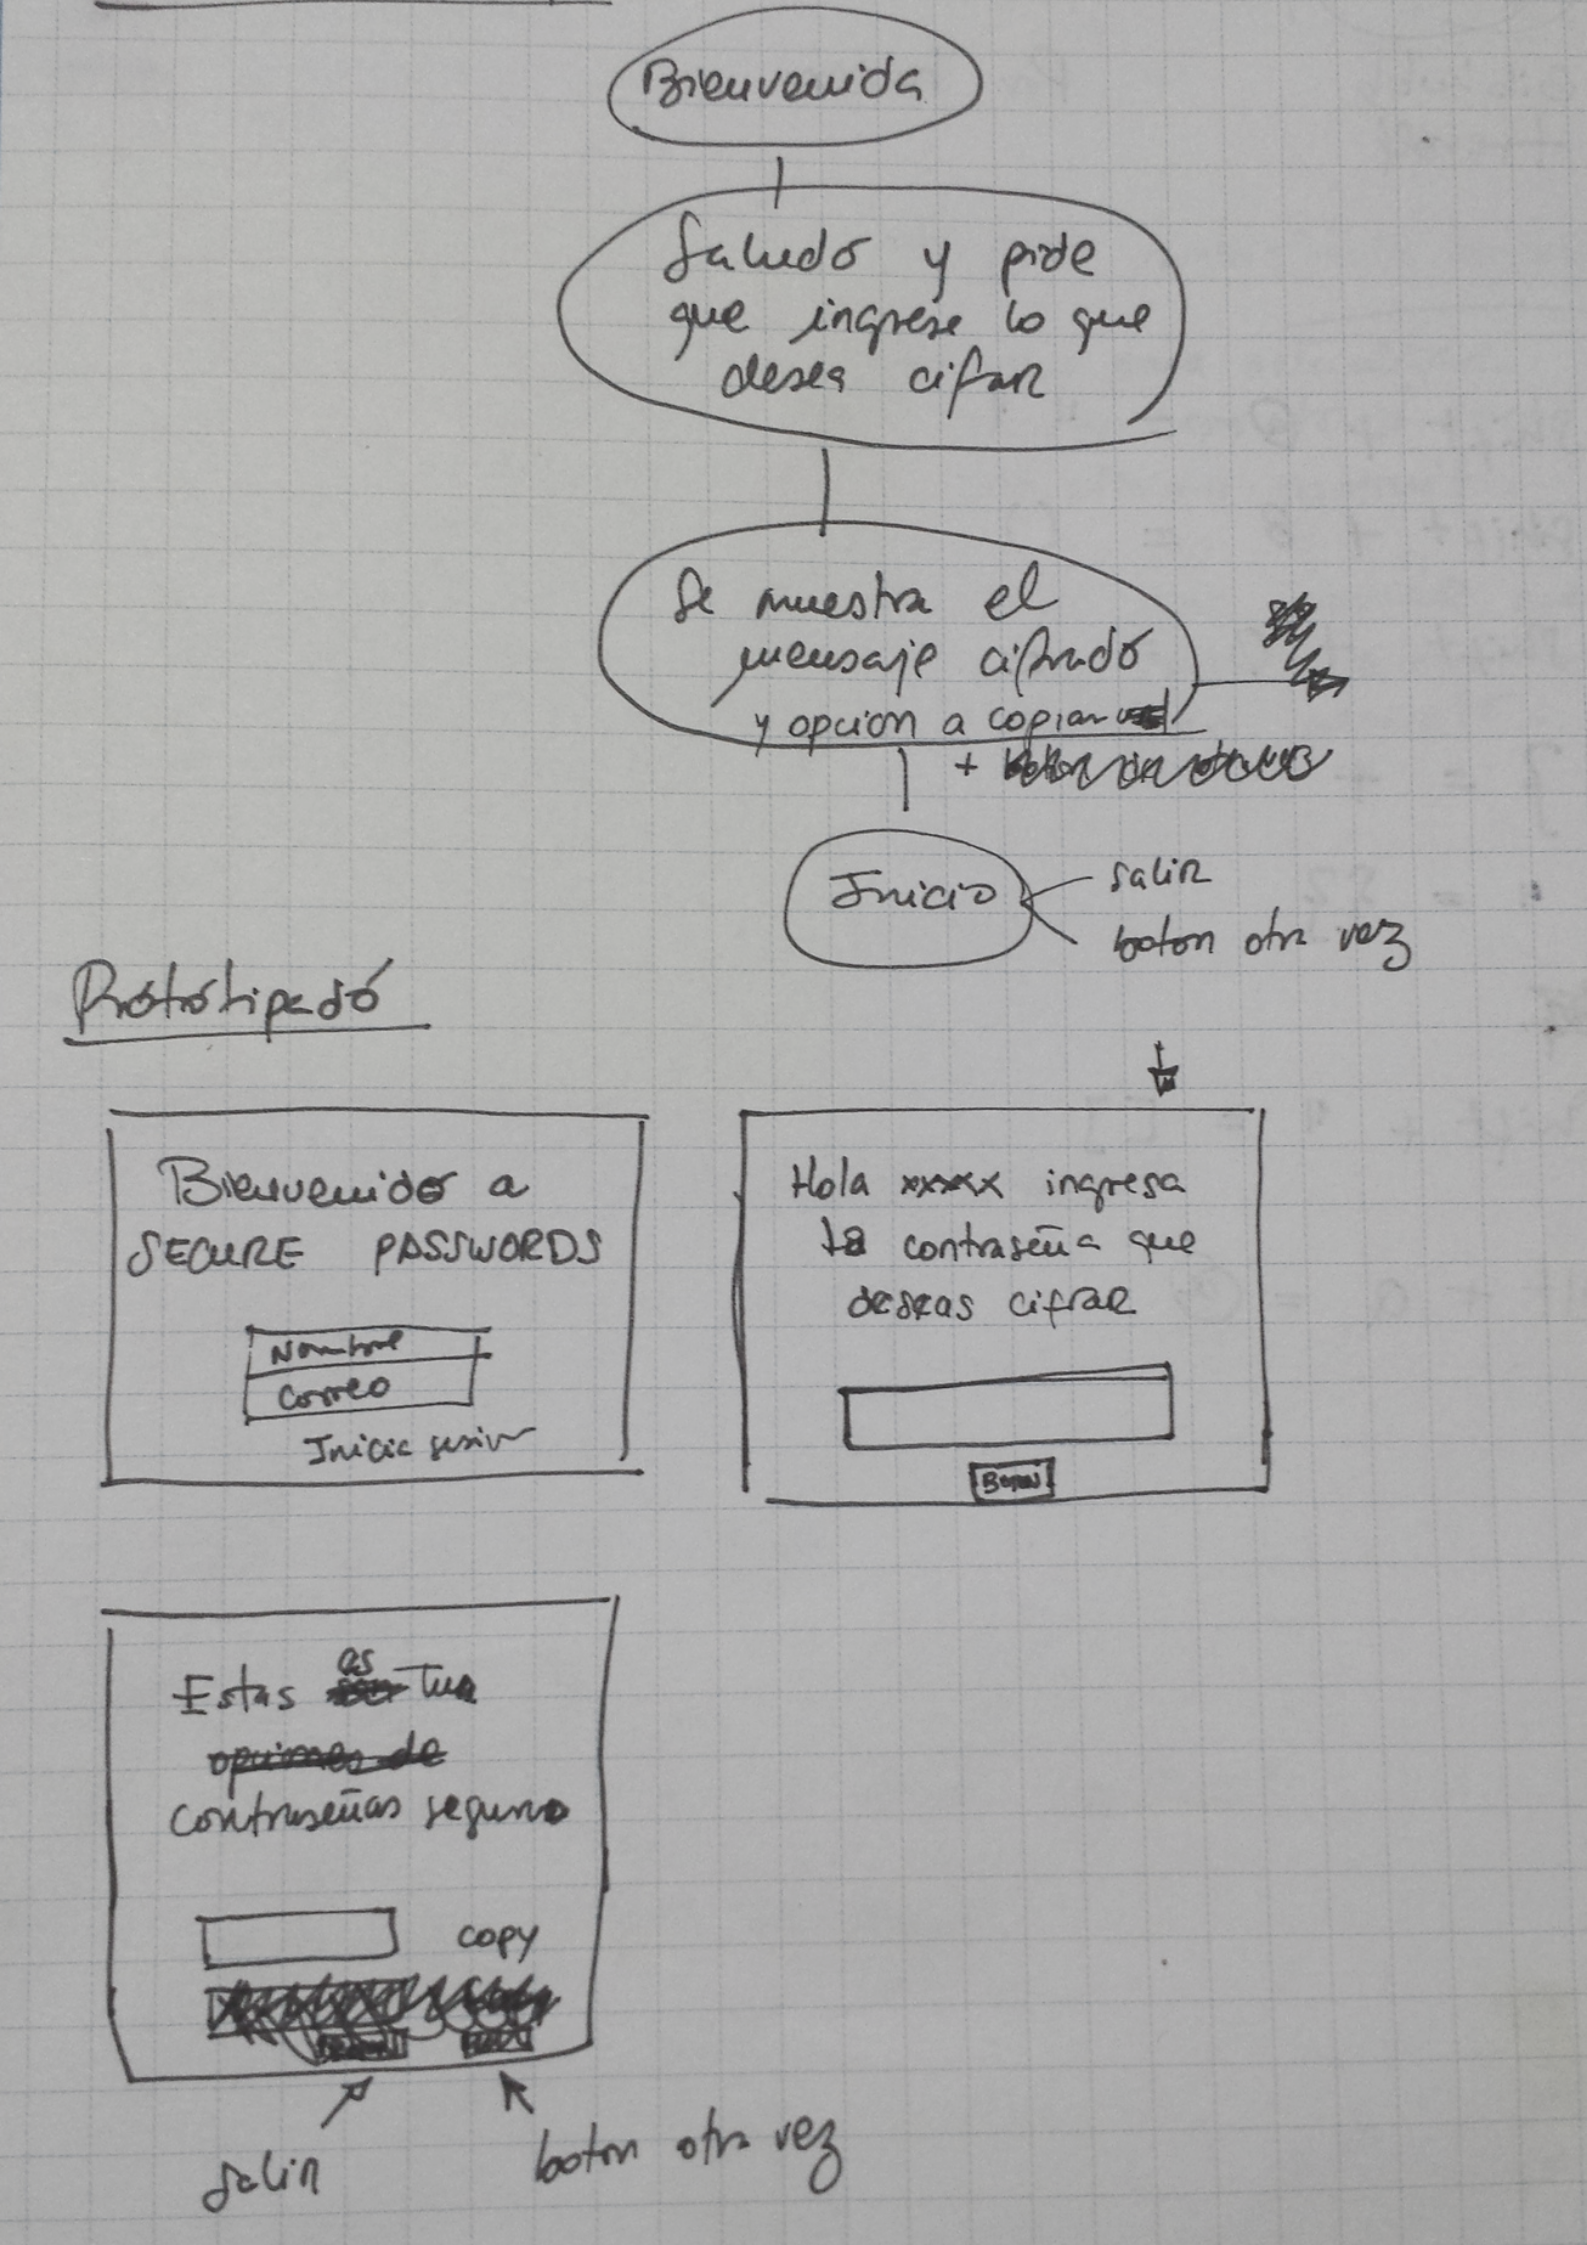 Bienvenida
Saludo y pide
que ingrese lo que
desea cifrar
Se muestra el
mensaje cifrado
y opción a copiar
+
Inicio
salir
boton otra vez
Prototipado
Bienvenido a
SECURE PASSWORDS
Nombre
Correo
Inicia sesion
Hola xxxxx ingresa
la contraseña que
deseas cifrar
Boton
as
Estas son Tua
opciones de
contraseñas seguras
copy
salir
boton otra vez